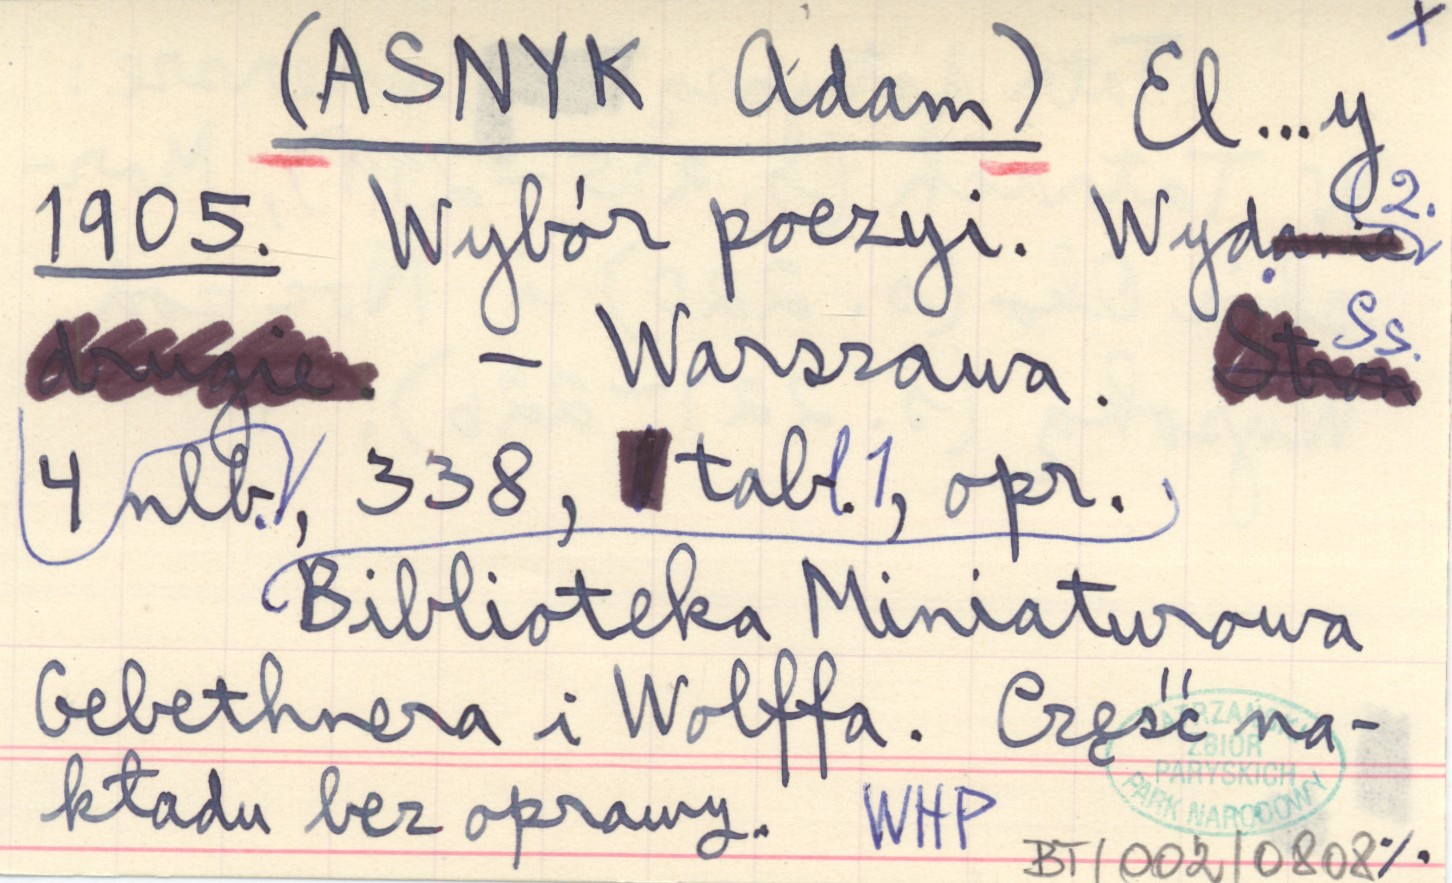 x
(ASNYK Adam) El...y
1905. Wybór poezyi. Wydanie 2.
drugie. – Warszawa. Stron Ss.
4 nlb., 338, tabl. 1, opr.
Biblioteka Miniaturowa
Gebethnera i Wolffa. Część na-
kładu bez oprawy. WHP
TATRZAŃSKI
ZBIÓR
PARYSKICH
PARK NARODOWY
BT/002/0808/.